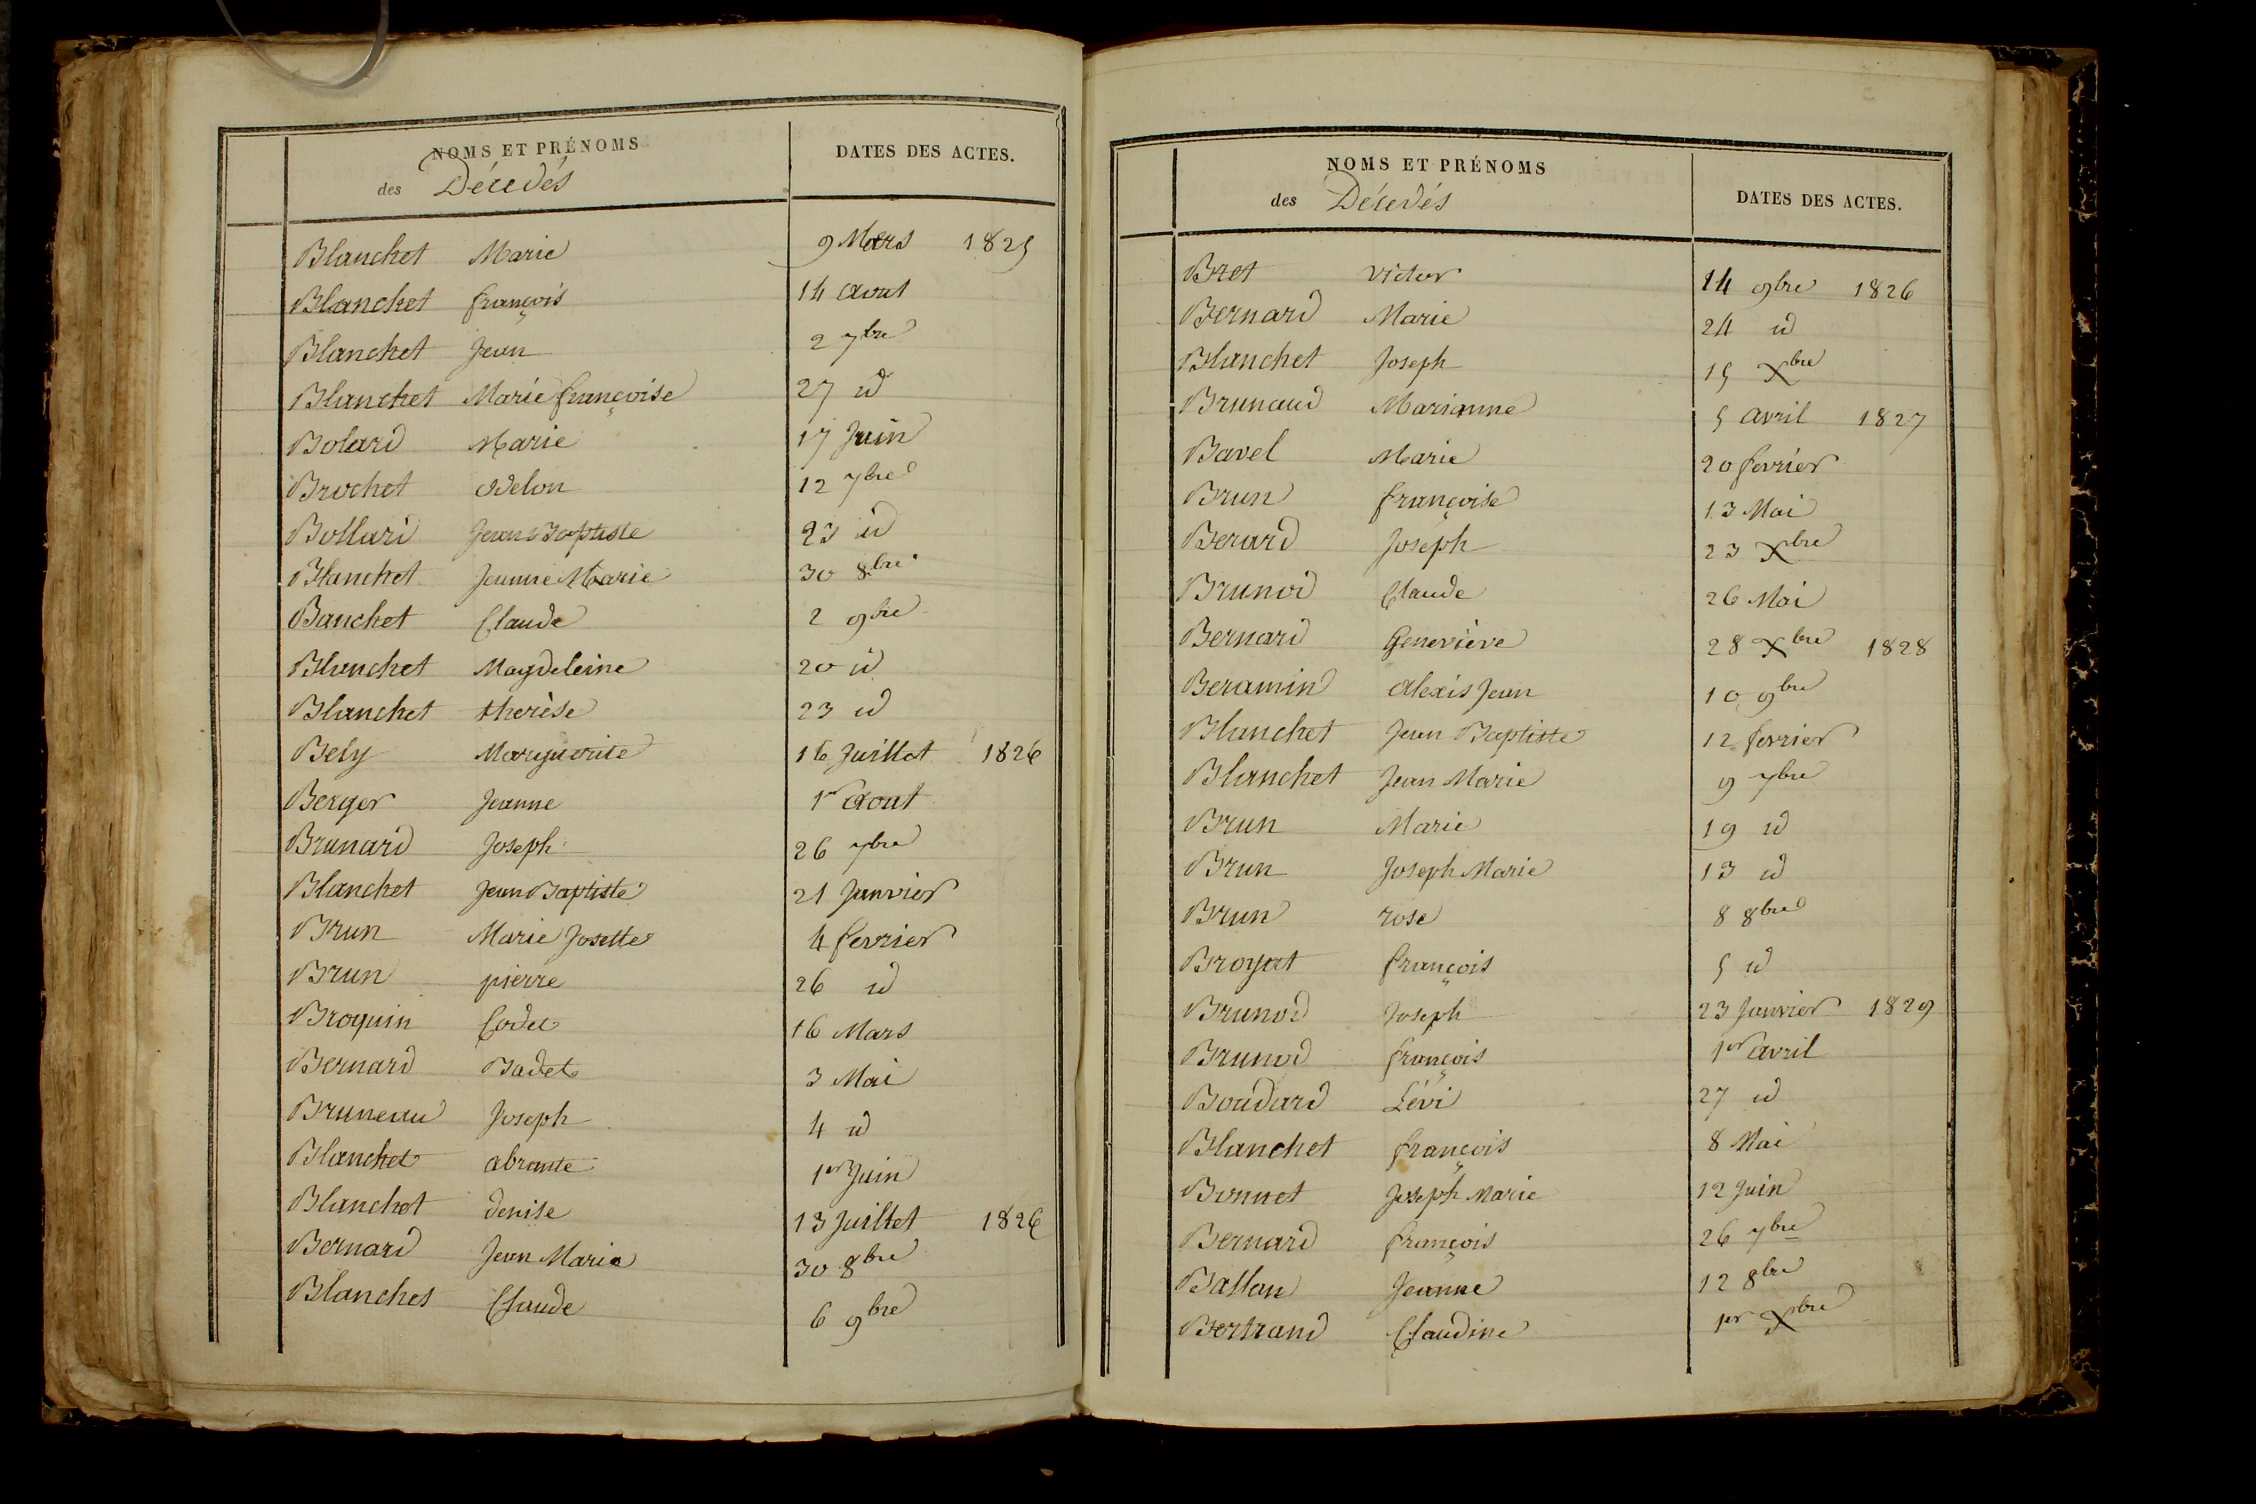 NOMS ET PRÉNOMS DATES DES ACTES.
des Décedés
Blanchet Marie 9 Mars 1825
Blanchet françois 14 aout
Blanchet Jean 2 7bre
Blanchet Marie françoise 27 id
Bolard Marie 17 Juin
Brochet odelon 12 7bre
Bollard Jean Baptiste 23 id
Blanchet Jeanne Marie 30 8bre
Banchet Claude 2 9bre
Blanchet Magdeleine 20 id
Blanchet therèse 23 id
Bely Marguerite 16 Juillet 1826
Berger Jeanne 1er aout
Brunard Joseph 26 7bre
Blanchet Jean Baptiste 21 Janvier
Brun Marie Josette 4 fevrier
Brun pierre 26 id
Broquin Codet 16 Mars
Bernard Badet 3 Mai
Bruneau Joseph 4 id
Blanchet abrante 1er Juin
Blanchet denise 13 Juillet 1826
Bernard Jean Marie 30 8bre
Blanches Claude 6 9bre
NOMS ET PRÉNOMS DATES DES ACTES.
des Décedés
Bret victor 14 9bre 1826
Bernard Marie 24 id
Blanchet Joseph 15 Xbre
Brunaud Marianne 5 avril 1827
Bavel Marie 20 fevrier
Brun françoise 13 Mai
Berard Joseph 23 Xbre
Brunod Claude 26 Mai
Bernard Geneviève 28 Xbre 1828
Beramin alexis Jean 10 9bre
Blanchet Jean Baptiste 12 fevrier
Blanchet Jean Marie 9 7bre
Brun Marie 19 id
Brun Joseph Marie 13 id
Brun rose 8 8bre
Broyat françois 5 id
Brunod Joseph 23 Janvier 1829
Brunod françois 1er avril
Boudard Lévi 27 id
Blanchet françois 8 Mai
Bonnet Joseph Marie 12 Juin
Bernard françois 26 7bre
Ballau Jeanne 12 8bre
Bertrand Claudine 1er Xbre